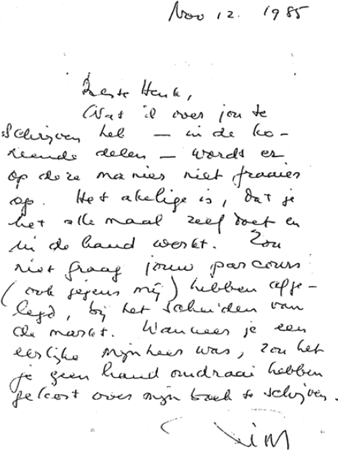 Nov 12. 1985
Beste Henk,
Wat ik over jou te
schrijven heb — in de ko-
mende delen — wordt er
op deze manier niet fraaier
op. Het akelige is, dat je
het allemaal zelf doet en
in de hand werkt. Zou
niet graag jouw parcours
(ook jegens mij) hebben afge-
legd, bij het scheiden van
de markt. Wanneer je een
eerlijke mijnheer was, zou het
je geen hand omdraai hebben
gekost over mijn boek te schrijven.
Wim